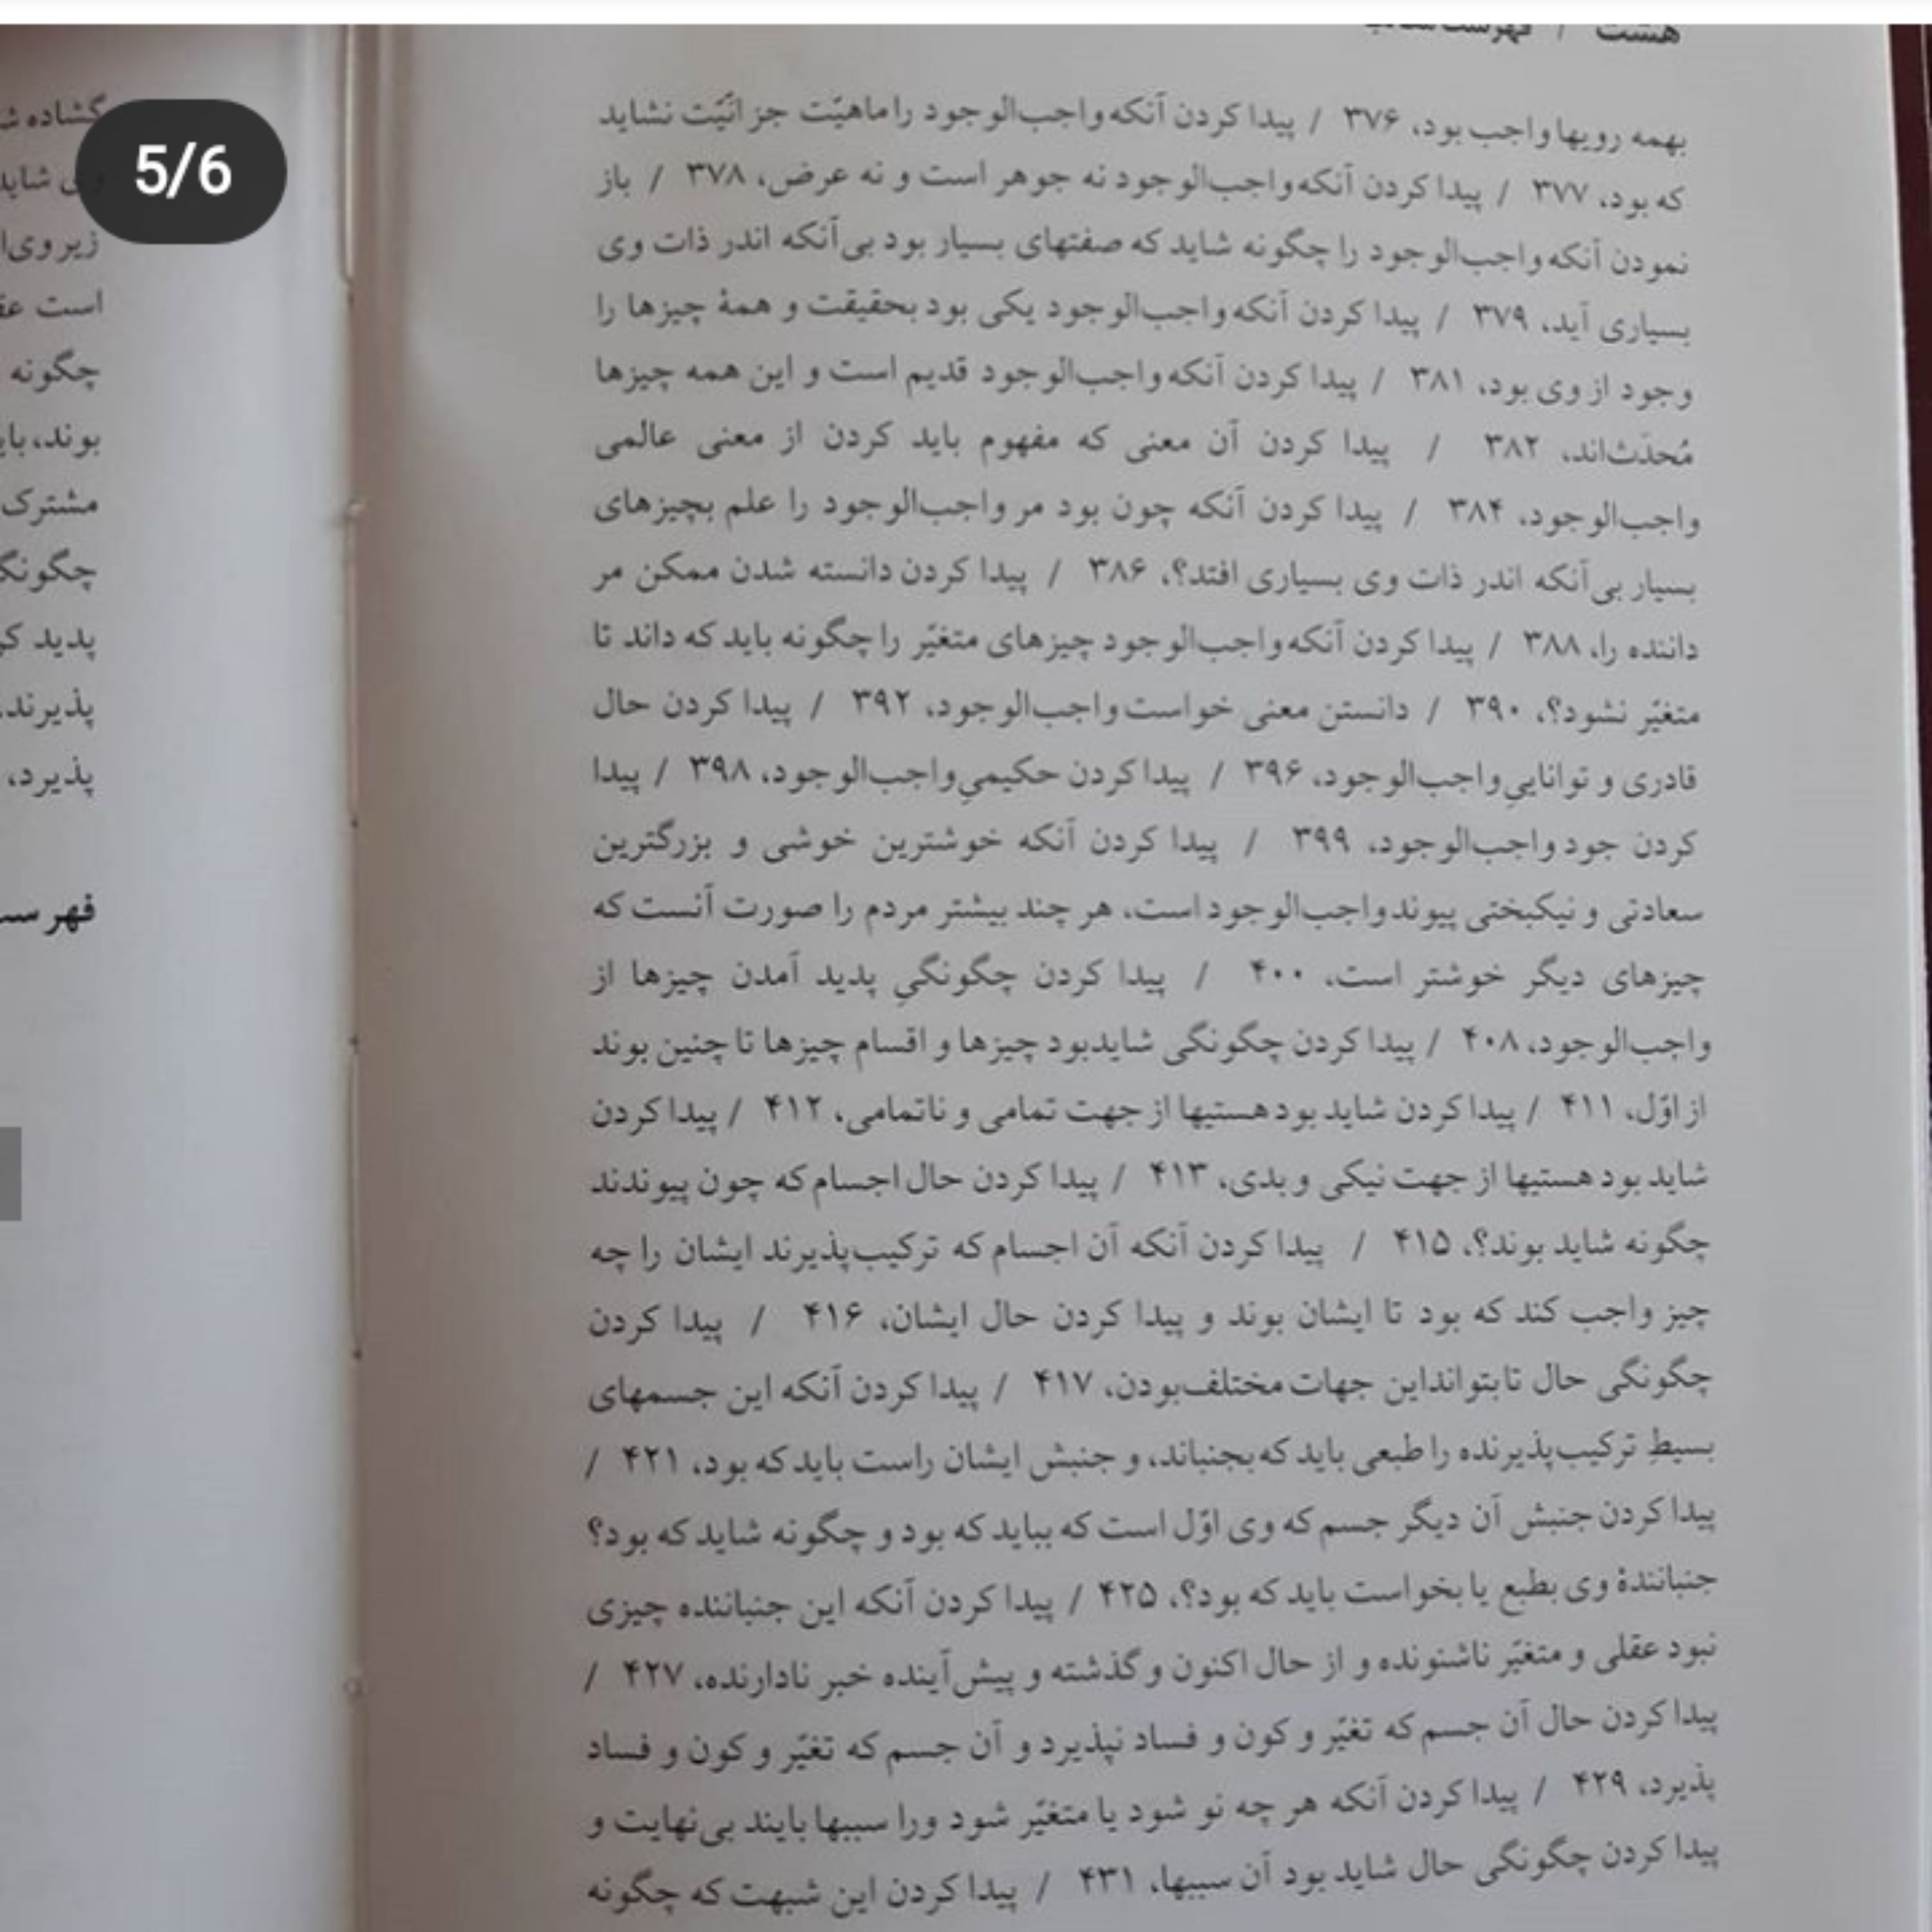 هشت / فهرست مطالب
بهمه رویها واجب بود، ۳۷۶ / پیدا کردن آنکه واجب‌الوجود را ماهیّت جز انّیّت نشاید
که بود، ۳۷۷ / پیدا کردن آنکه واجب‌الوجود نه جوهر است و نه عرض، ۳۷۸ / باز
نمودن آنکه واجب‌الوجود را چگونه شاید که صفتهای بسیار بود بی‌آنکه اندر ذات وی
بسیاری آید، ۳۷۹ / پیدا کردن آنکه واجب‌الوجود یکی بود بحقیقت و همهٔ چیزها را
وجود از وی بود، ۳۸۱ / پیدا کردن آنکه واجب‌الوجود قدیم است و این همه چیزها
مُحدَث‌اند، ۳۸۲ / پیدا کردن آن معنی که مفهوم باید کردن از معنی عالمی
واجب‌الوجود، ۳۸۴ / پیدا کردن آنکه چون بود مر واجب‌الوجود را علم بچیزهای
بسیار بی‌آنکه اندر ذات وی بسیاری افتد؟، ۳۸۶ / پیدا کردن دانسته شدن ممکن مر
داننده را، ۳۸۸ / پیدا کردن آنکه واجب‌الوجود چیزهای متغیّر را چگونه باید که داند تا
متغیّر نشود؟، ۳۹۰ / دانستن معنی خواست واجب‌الوجود، ۳۹۲ / پیدا کردن حال
قادری و تواناییِ واجب‌الوجود، ۳۹۶ / پیدا کردن حکیمیِ واجب‌الوجود، ۳۹۸ / پیدا
کردن جود واجب‌الوجود، ۳۹۹ / پیدا کردن آنکه خوشترین خوشی و بزرگترین
سعادتی و نیکبختی پیوند واجب‌الوجود است، هر چند بیشتر مردم را صورت آنست که
چیزهای دیگر خوشتر است، ۴۰۰ / پیدا کردن چگونگیِ پدید آمدن چیزها از
واجب‌الوجود، ۴۰۸ / پیدا کردن چگونگی شایدبود چیزها و اقسام چیزها تا چنین بوند
از اوّل، ۴۱۱ / پیدا کردن شاید بود هستیها از جهت تمامی و ناتمامی، ۴۱۲ / پیدا کردن
شاید بود هستیها از جهت نیکی و بدی، ۴۱۳ / پیدا کردن حال اجسام که چون پیوندند
چگونه شاید بوند؟، ۴۱۵ / پیدا کردن آنکه آن اجسام که ترکیب‌پذیرند ایشان را چه
چیز واجب کند که بود تا ایشان بوند و پیدا کردن حال ایشان، ۴۱۶ / پیدا کردن
چگونگی حال تا بتواند این جهات مختلف بودن، ۴۱۷ / پیدا کردن آنکه این جسمهای
بسیطِ ترکیب‌پذیرنده را طبعی باید که بجنباند، و جنبش ایشان راست باید که بود، ۴۲۱ /
پیدا کردن جنبش آن دیگر جسم که وی اوّل است که بباید که بود و چگونه شاید که بود؟
جنبانندهٔ وی بطبع یا بخواست باید که بود؟، ۴۲۵ / پیدا کردن آنکه این جنباننده چیزی
نبود عقلی و متغیّر ناشنونده و از حال اکنون و گذشته و پیش‌آینده خبر نادارنده، ۴۲۷ /
پیدا کردن حال آن جسم که تغیّر و کون و فساد نپذیرد و آن جسم که تغیّر و کون و فساد
پذیرد، ۴۲۹ / پیدا کردن آنکه هر چه نو شود یا متغیّر شود ورا سببها بایند بی‌نهایت و
پیدا کردن چگونگی حال شاید بود آن سببها، ۴۳۱ / پیدا کردن این شبهت که چگونه
5/6
گشاده
شاید
زیر وی
است
چگونه
بوند،
مشترک
پدید
پذیرند
پذیرد،